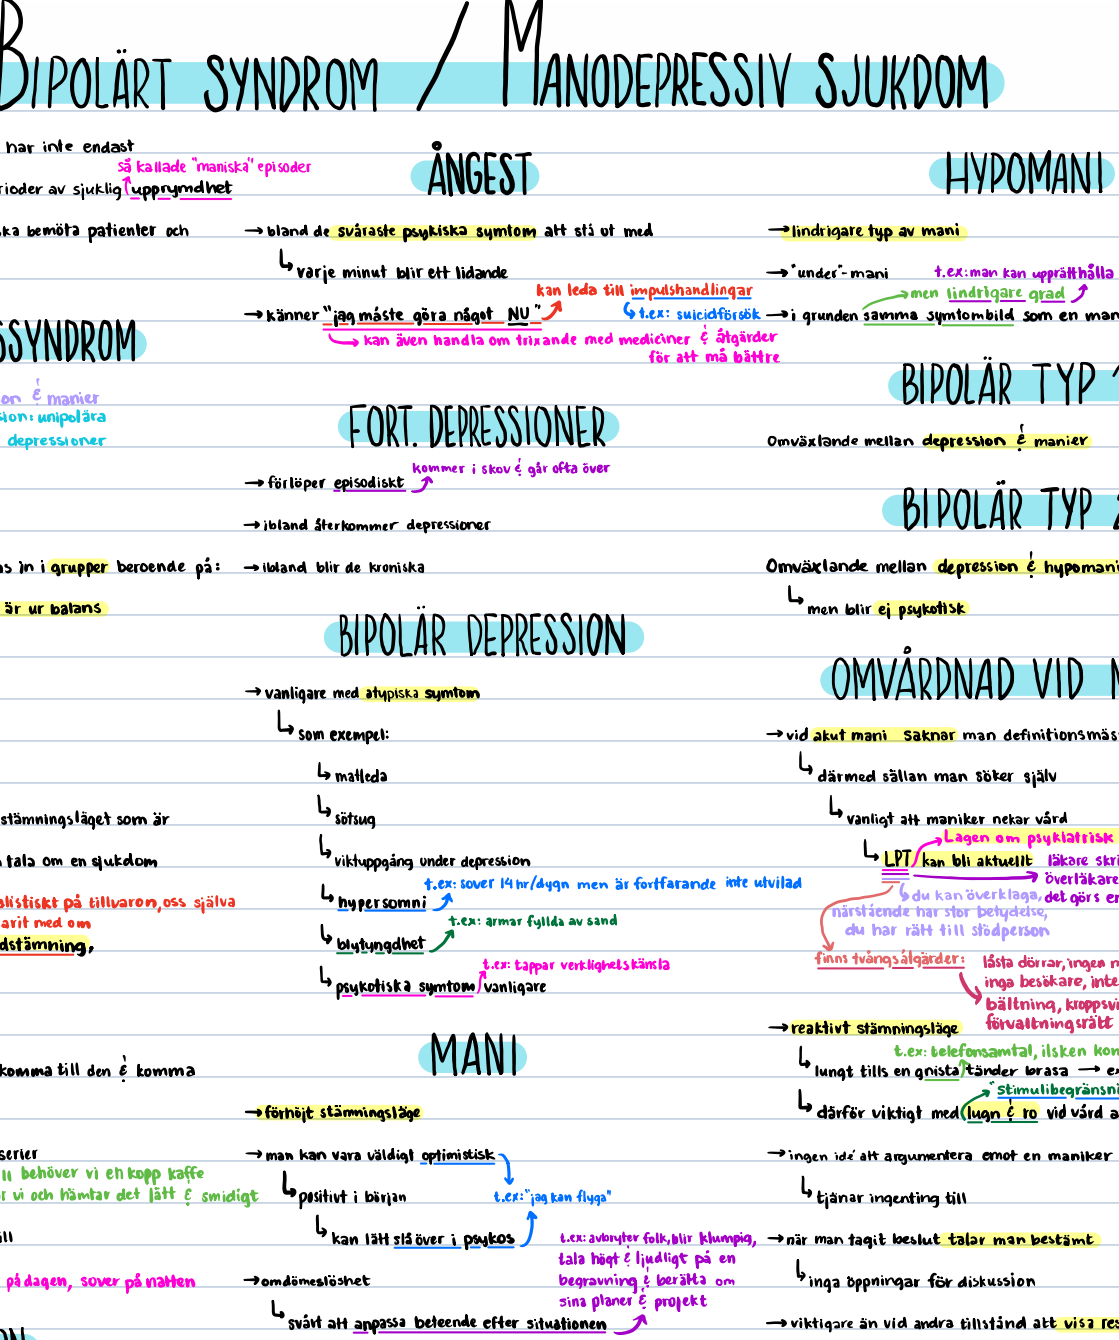 BIPOLÄRT SYNDROM / MANODEPRESSIV SJUKDOM
har inte endast
så kallade "maniska" episoder
rioder av sjuklig upprymdhet
ska bemöta patienter och
SSYNDROM
on & manier
sion: unipolära
depressioner
as in i grupper beroende på:
är ur balans
stämningsläget som är
tala om en sjukdom
alistiskt på tillvaron, oss själva
arit med om
dstämning,
komma till den & komma
serier
ll behöver vi en kopp kaffe
r vi och hämtar det lätt & smidigt
ill
på dagen, sover på natten
ON
ÅNGEST
→ bland de svåraste psykiska symtom att stå ut med
↳ varje minut blir ett lidande
kan leda till impulshandlingar
→ känner "jag måste göra något NU"
↳ t.ex: suicidförsök
→ kan även handla om trixande med mediciner & åtgärder
för att må bättre
FORT. DEPRESSIONER
kommer i skov & går ofta över
→ förlöper episodiskt
→ ibland återkommer depressioner
→ ibland blir de kroniska
BIPOLÄR DEPRESSION
→ vanligare med atypiska symtom
↳ som exempel:
↳ matleda
↳ sötsug
↳ viktuppgång under depression
t.ex: sover 14hr/dygn men är fortfarande inte utvilad
↳ hypersomni
t.ex: armar fyllda av sand
↳ blytyngdhet
t.ex: tappar verklighetskänsla
↳ psykotiska symtom vanligare
MANI
→ förhöjt stämningsläge
→ man kan vara väldigt optimistisk
↳ positivt i början
t.ex: "jag kan flyga"
↳ kan lätt slå över i psykos
→ omdömeslöshet
t.ex: avbryter folk, blir klumpig,
tala högt & ljudligt på en
begravning & berätta om
sina planer & projekt
↳ svårt att anpassa beteende efter situationen
HYPOMANI
→ lindrigare typ av mani
→ "under"-mani
t.ex: man kan upprätthålla
men lindrigare grad
→ i grunden samma symtombild som en man
BIPOLÄR TYP 1
Omväxlande mellan depression & manier
BIPOLÄR TYP 2
Omväxlande mellan depression & hypomani
↳ men blir ej psykotisk
OMVÅRDNAD VID M
→ vid akut mani saknar man definitionsmäss
↳ därmed sällan man söker själv
↳ vanligt att maniker nekar vård
Lagen om psykiatrisk
↳ LPT kan bli aktuellt
läkare skri
överläkare
det görs en
du kan överklaga,
närstående har stor betydelse,
du har rätt till stödperson
finns tvångsåtgärder:
låsta dörrar, ingen m
inga besökare, inte
bältning, kroppsvi
förvaltningsrätt
→ reaktivt stämningsläge
t.ex: telefonsamtal, ilsken kom
↳ lungt tills en gnista tänder brasa → ex
"stimulibegränsni
↳ därför viktigt med lugn & ro vid vård a
→ ingen idé att argumentera emot en maniker
↳ tjänar ingenting till
→ när man tagit beslut talar man bestämt
↳ inga öppningar för diskussion
→ viktigare än vid andra tillstånd att visa res